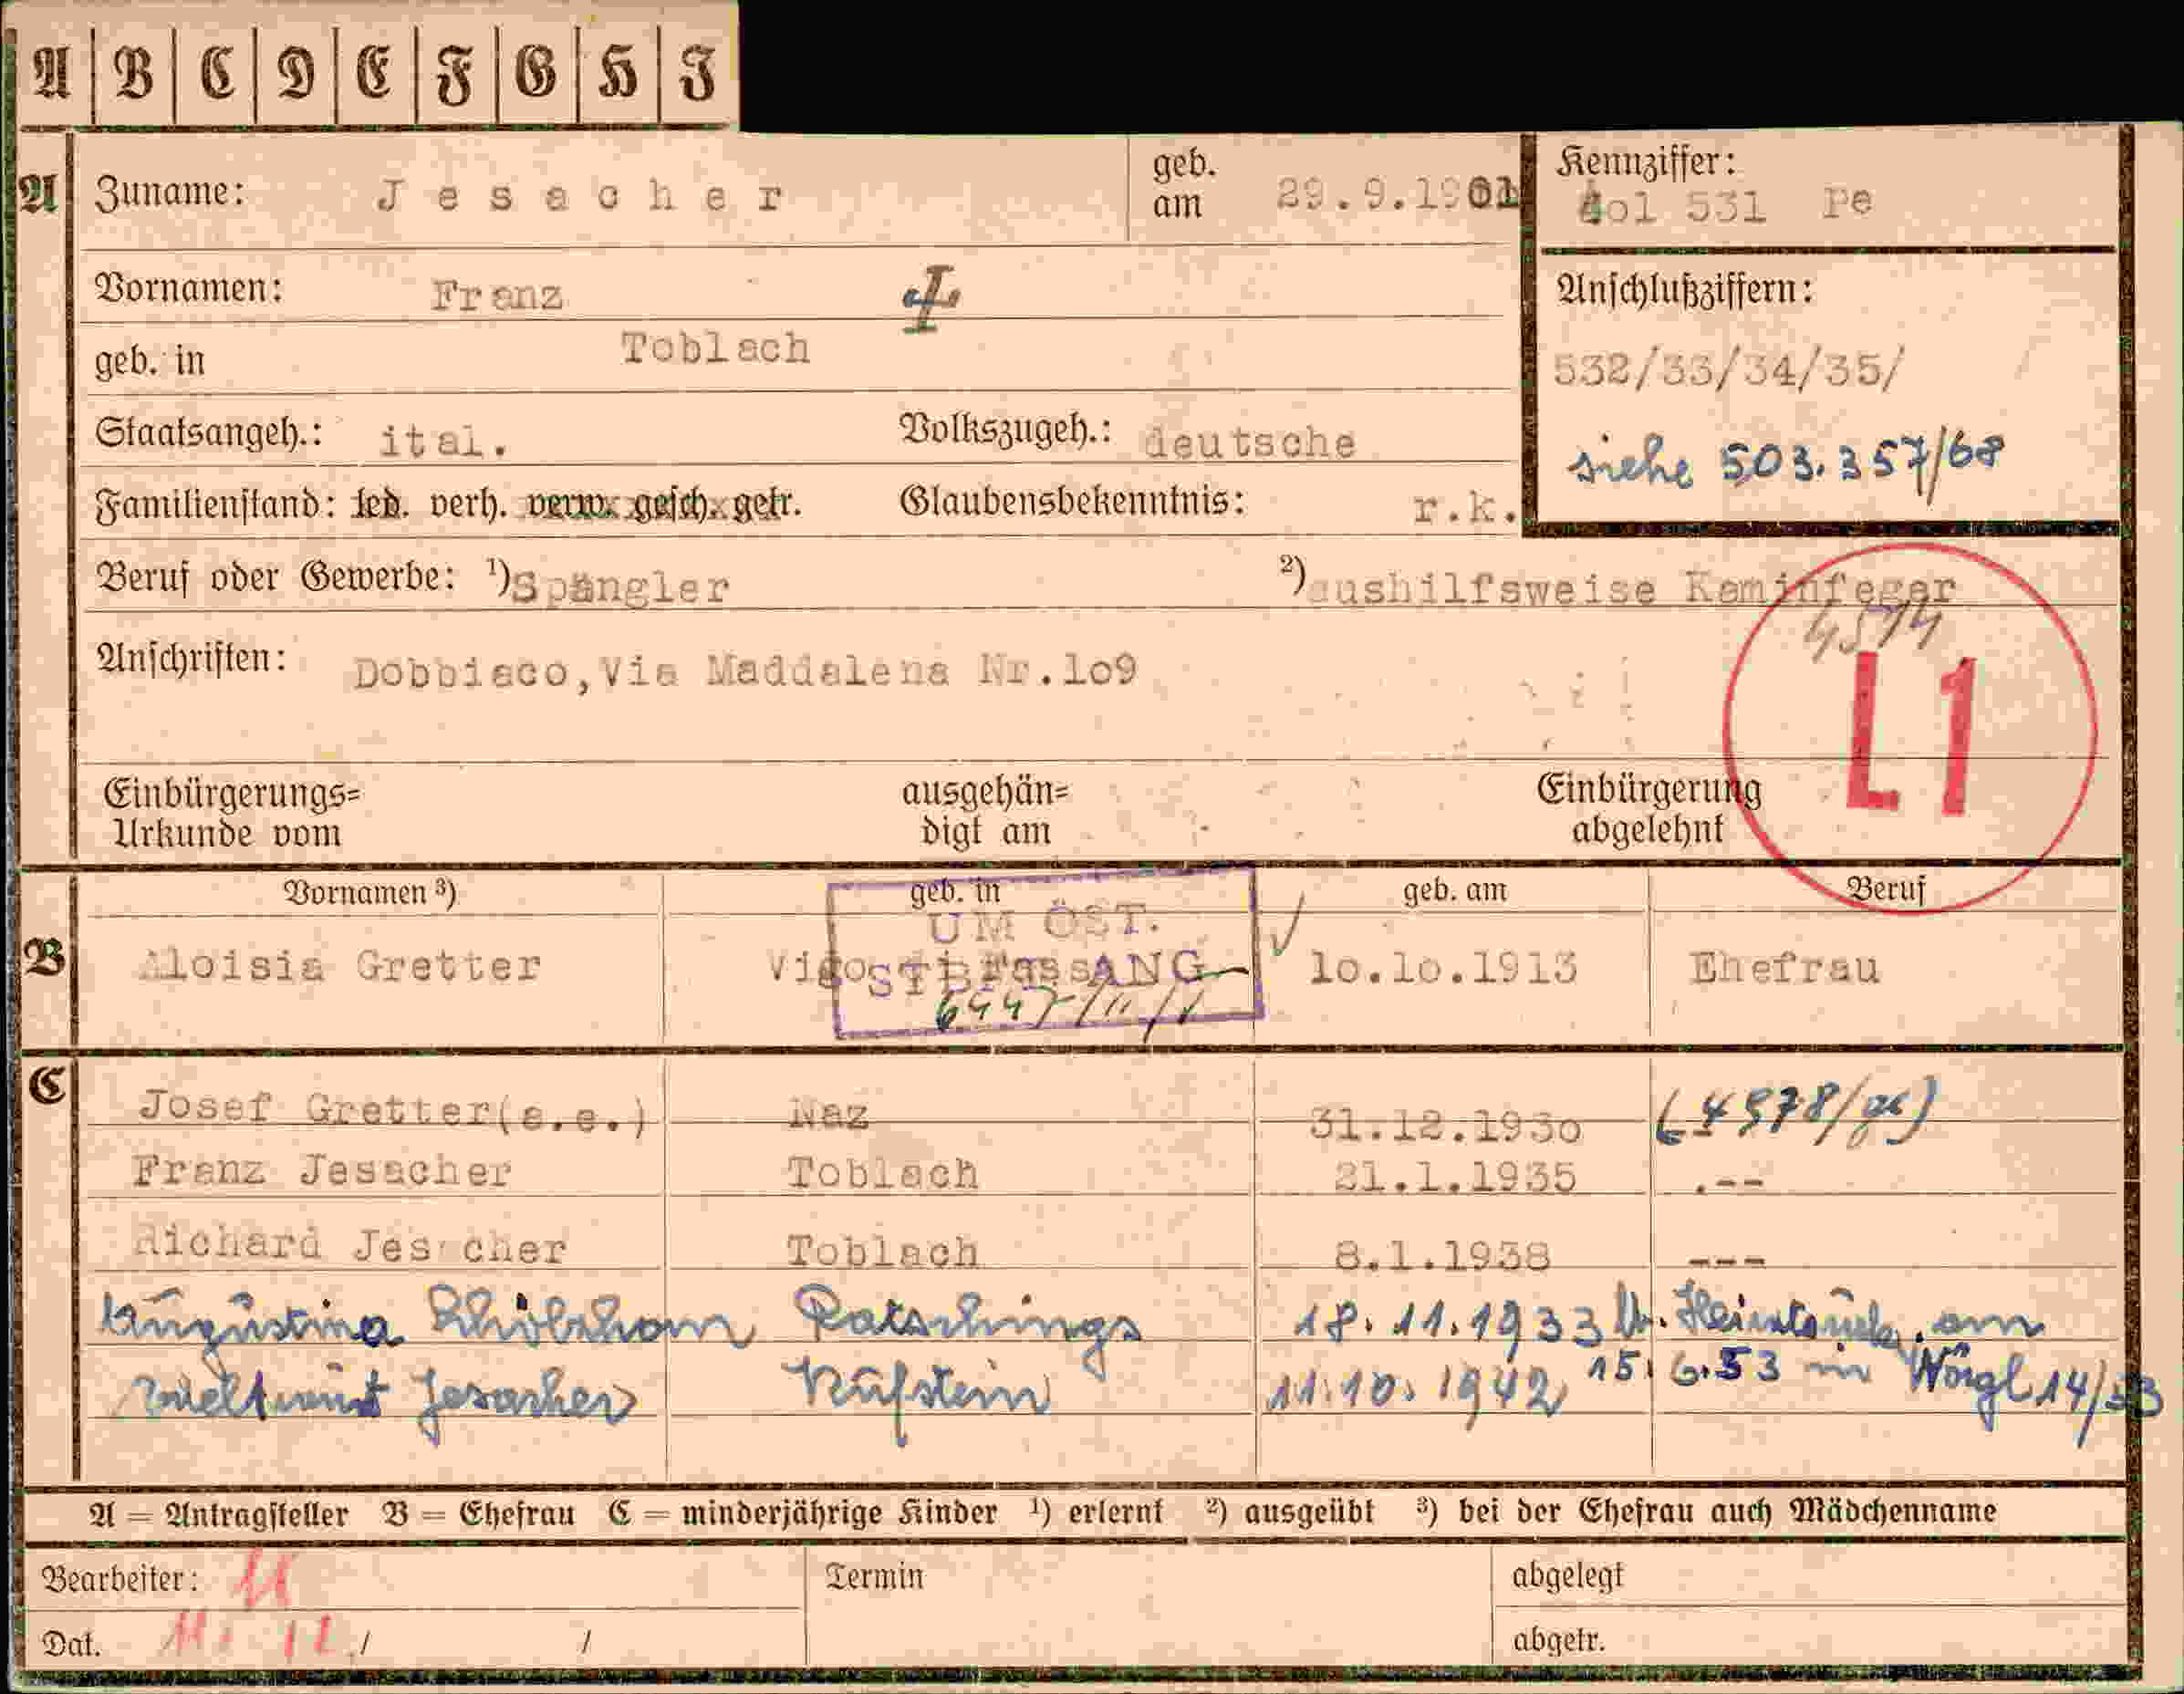 A B C D E F G H J
A Zuname: Jesacher geb. am 29.9.1901 Kennziffer: 531 Pe
Vornamen: Franz Anschlußziffern:
geb. in Toblach 532/33/34/35/
Staatsangeh.: ital. Volkszugeh.: deutsche siehe 503.357/68
Familienstand: led. verh. verw. gesch. getr. Glaubensbekenntnis: r.k.
Beruf oder Gewerbe: ¹) Spängler ²) aushilfsweise Kaminfeger
4574
Anschriften: Dobbiaco, Via Maddalena Nr.109
L1
Einbürgerungs= ausgehän= Einbürgerung
Urkunde vom digt am abgelehnt
Vornamen ³) geb. in geb. am Beruf
UM ÖST.
B Aloisia Gretter Vigo di Fassa 10.10.1913 Ehefrau
STB.
C Josef Gretter(a.e.) Naz 31.12.1930
Franz Jesacher Toblach 21.1.1935 .--
Richard Jesacher Toblach 8.1.1938 ---
Ratschings 18.11.1933 am
Jesacher Kufstein 11.10.1942 15.6.53 in Wörgl 14/53
A = Antragsteller B = Ehefrau C = minderjährige Kinder ¹) erlernt ²) ausgeübt ³) bei der Ehefrau auch Mädchenname
Bearbeiter: Termin abgelegt
Dat. / / abgetr.